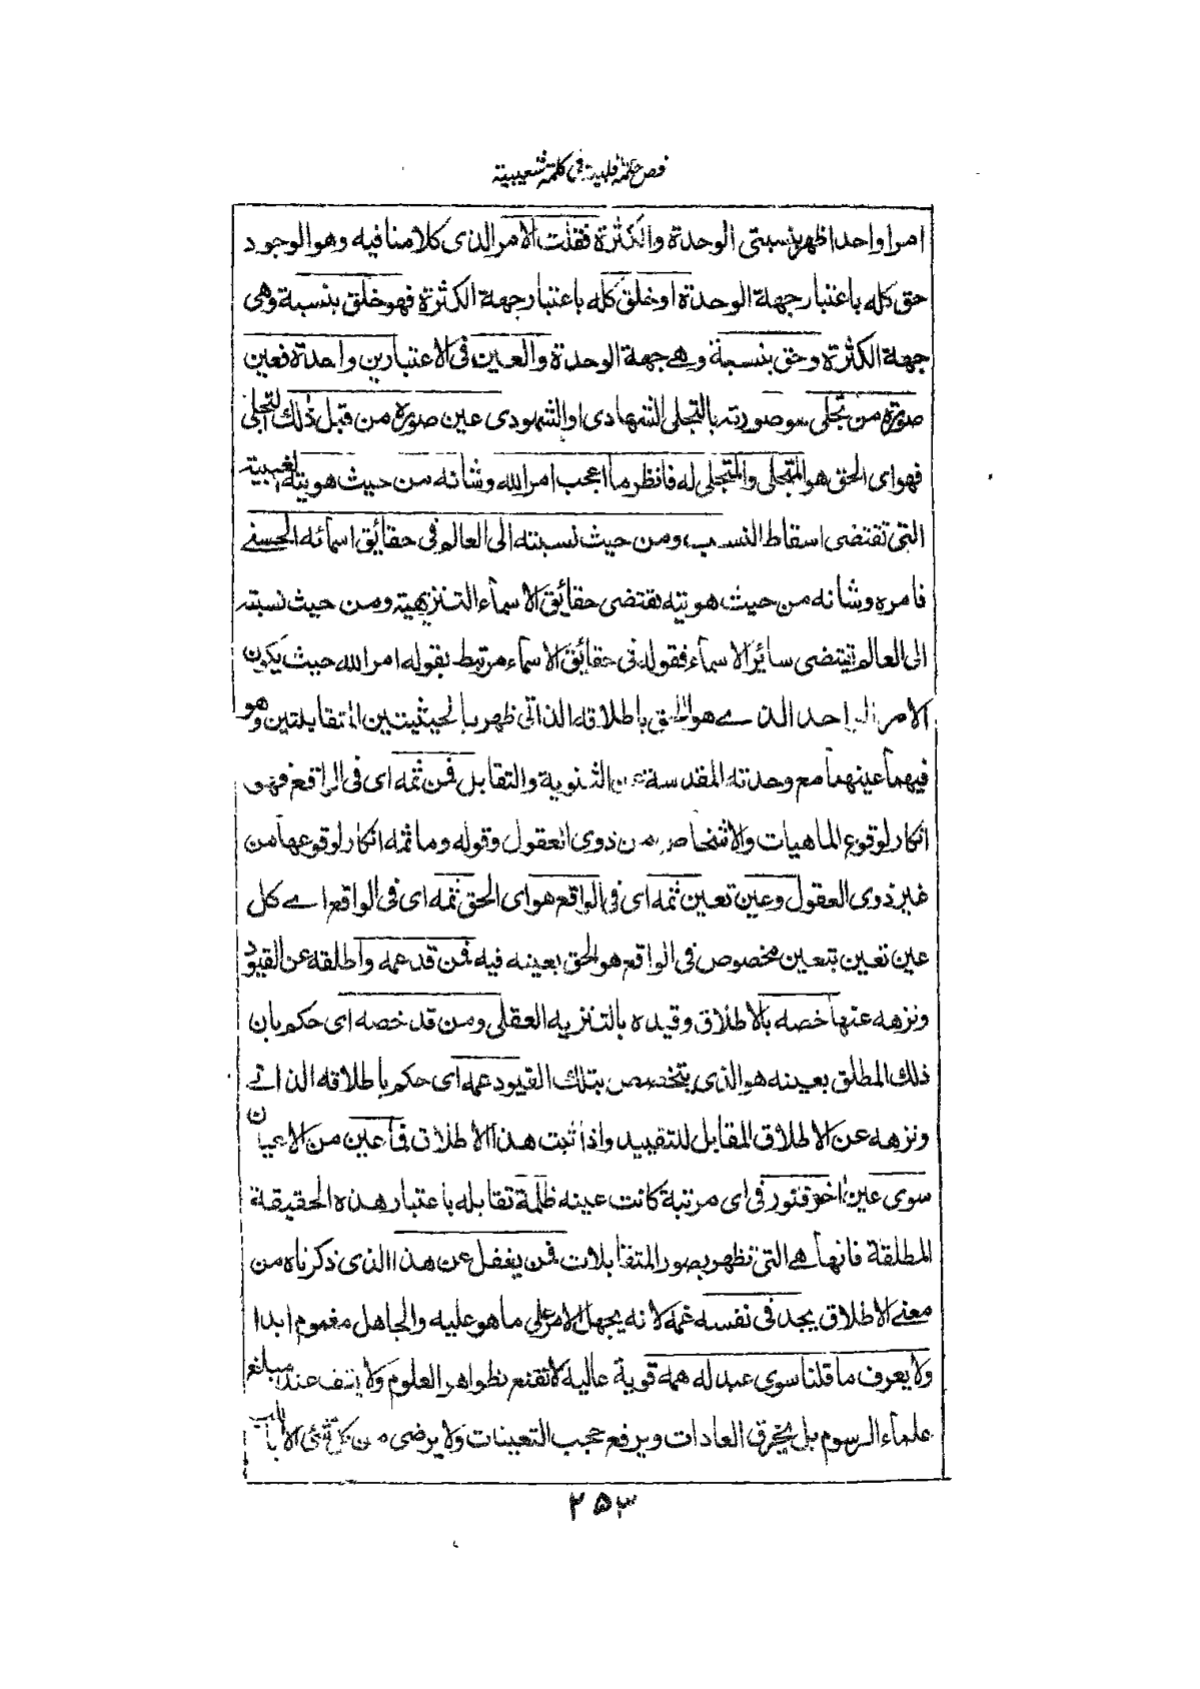 فص حكمة قلبية فى كلمة شعيبية
امرا واحدا ظهر بنسبتى الوحدة والكثرة فقلت الامر الذى كلامنا فيه وهو الوجود
حق كله باعتبار جهة الوحدة او خلق كله باعتبار جهة الكثرة فهو خلق بنسبة وهى
جهة الكثرة وحق بنسبة وهے جهة الوحدة والعين فى الاعتبارين واحدة فعين
صورة من تجلى سو صورته بالتجلى الشهادى او الشهودى عين صورة من قبل ذلك التجلى
فهو اى الحق هو المتجلى والمتجلى له فانظر ما اعجب امر الله وشانه من حيث هويته الغيبية
التى تقتضى اسقاط النسب ومن حيث نسبته الى العالم فى حقائق اسمائه الحسنے
فامره وشانه من حيث هويته يقتضى حقائق الاسماء التنزيهية ومن حيث نسبته
الى العالم يقتضى سائر الاسماء فقوله فى حقائق الاسماء مرتبط بقوله امر الله حيث يكون
الامر الواحد الذے هو الحق باطلاقه الذاتى ظهر بالحيثيتين المتقابلتين وهو
فيهما عينهما مع وحدته المقدسة عن الثنوية والتقابل فمن ثمه اى فى الواقع فهو
انكار لوقوع الماهيات والاشخاص من ذوى العقول وقوله وما ثمه انكار لوقوعها من
غير ذوى العقول وعين تعين ثمه اى فى الواقع هو اى الحق ثمه اى فى الواقع اے كل
عين تعين بتعين مخصوص فى الواقع هو الحق بعينه فيه فمن قد عمه واطلقه عن القيود
ونزهه عنها خصه بالاطلاق وقيده بالتنزيه العقلى ومن قد خصه اى حكم بان
ذلك المطلق بعينه هو الذى يتخصص بتلك القيود عمه اى حكم باطلاقه الذاتے
ونزهه عن الاطلاق المقابل للتقييد واذا ثبت هذا الاطلاق فما عين من الاعيان
سوى عين اخر فنور فى اى مرتبة كانت عينه ظلمة تقابله باعتبار هذه الحقيقة
المطلقة فانها هے التى تظهر بصور المتقابلات فمن يغفل عن هذا الذى ذكرناه من
معنے الاطلاق يجد فى نفسه غمه لانه يجهل الامر على ما هو عليه والجاهل مغموم ابدا
ولا يعرف ما قلنا سوى عبد له همه قوية عالية لا تقنع بظواهر العلوم ولا يقف عند مبالغ
علماء الرسوم بل يخرق العادات ويرفع حجب التعينات ولا يرضى من كل شئ الا باللب
۲۵۳